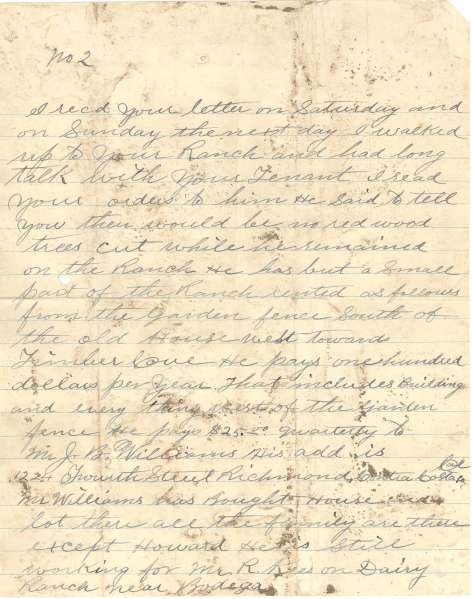 No 2
I recd your letter on Saturday and
on Sunday the next day I walked
up to your Ranch and had long
talk with your Tenant I read
your orders to him He said to tell
you there would be no red wood
trees cut while he remained
on the Ranch He has but a small
part of the Ranch rented as follows
from the Garden fence South of
the old House west towards
Timber Cove He pays one hundred
dollars per year That includes Building
and every thing west of the Garden
fence He pays $25.00 quarterly to
Mr J. B. Williams His add is
Fourth Street Richmond Contra Costa Co Cal
Mr Williams has Bought House and
lot there all the family are there
except Howard He is still
working for Mr R. on Dairy
Ranch near Bodega